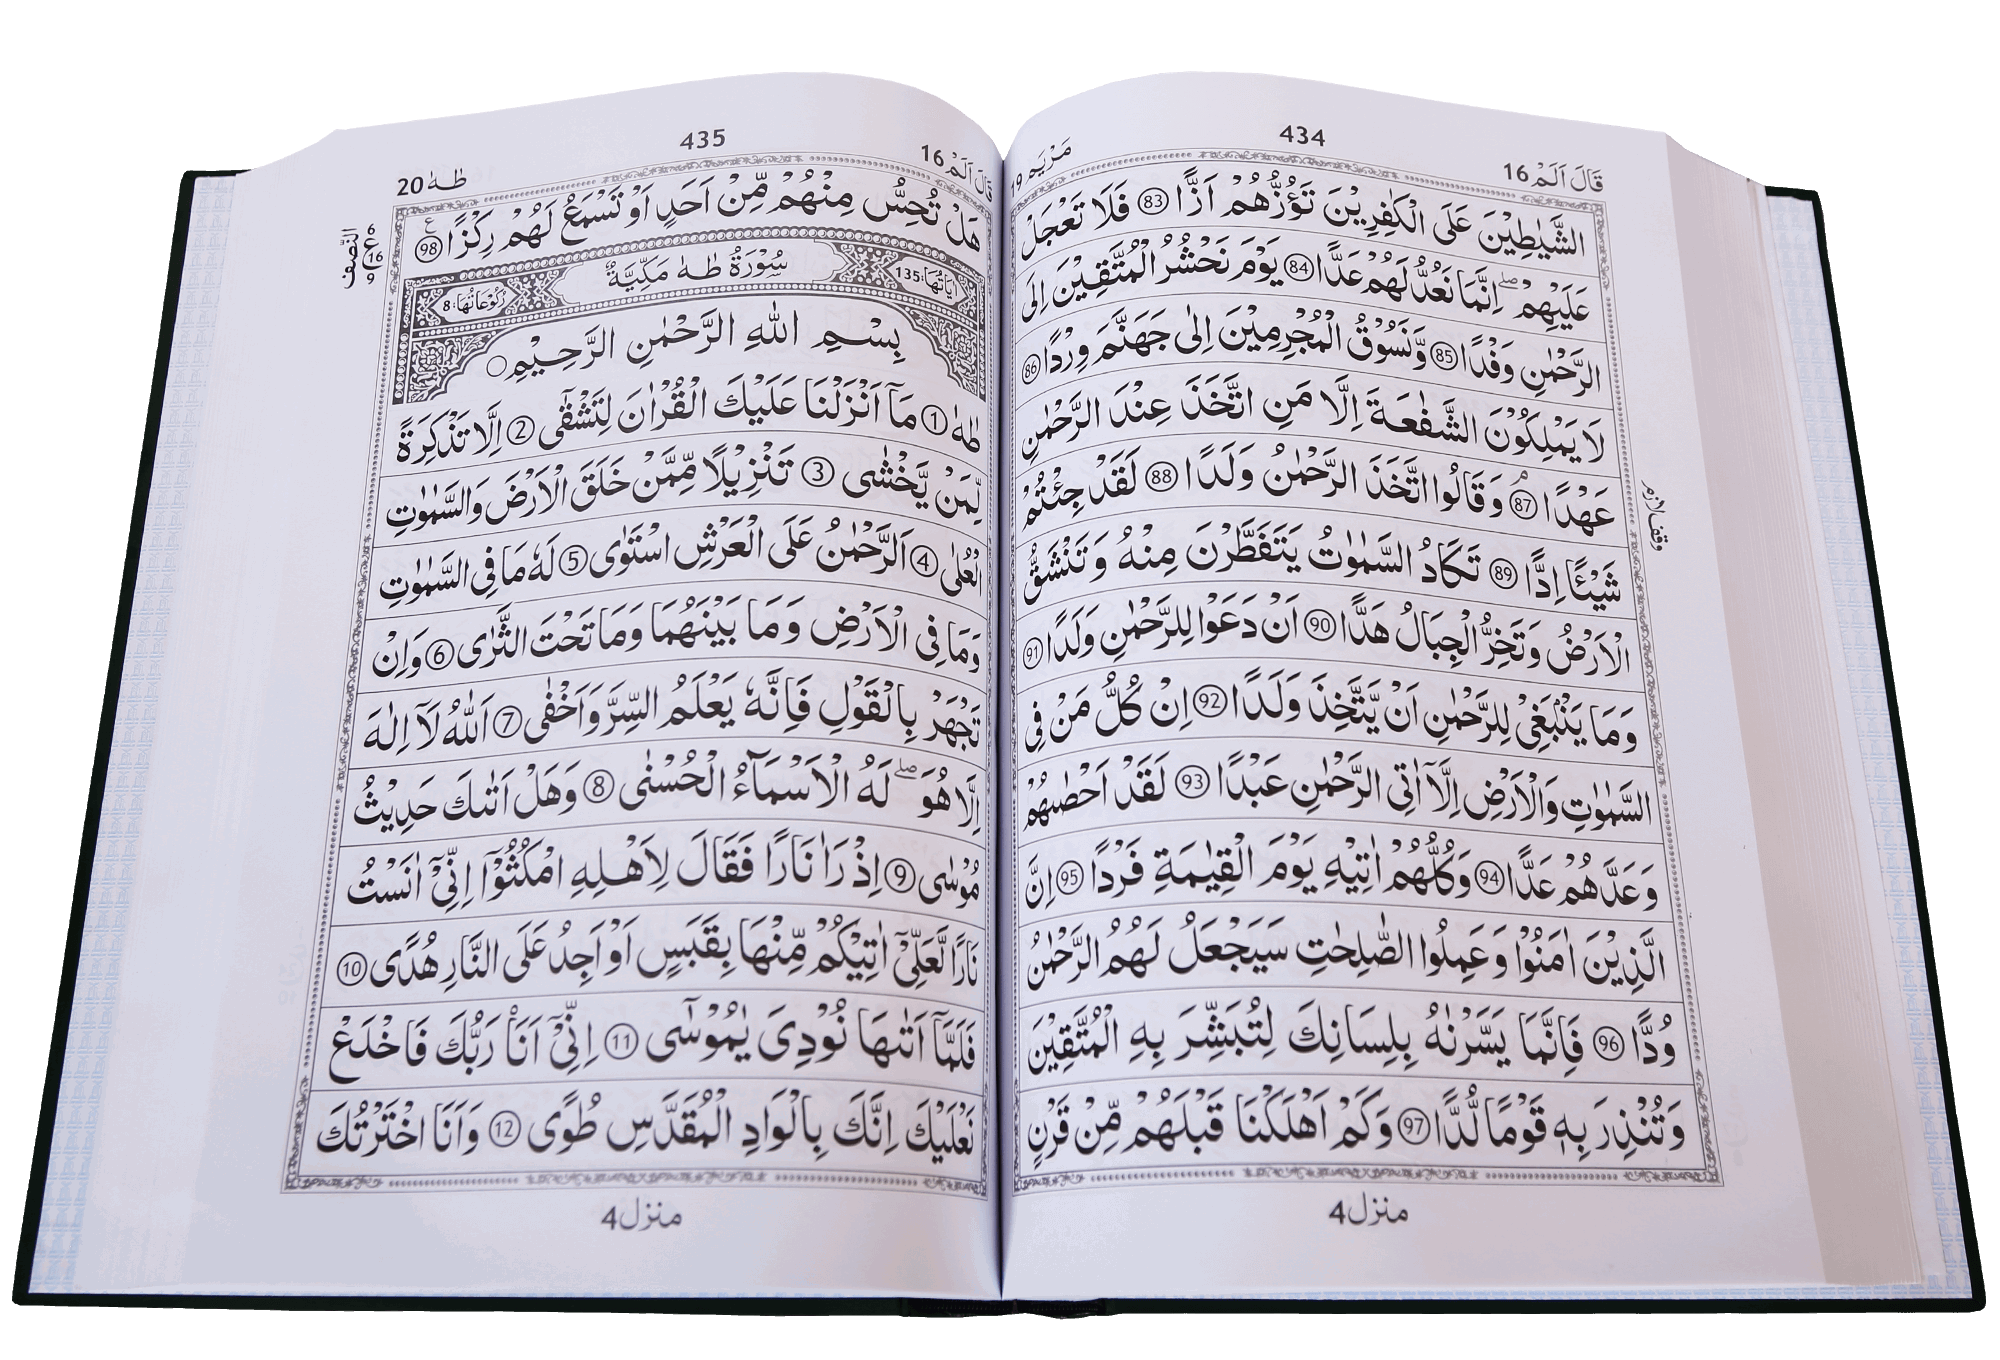 مَرْيَم 19
434
قَالَ اَلَمْ 16
الشَّيٰطِيْنَ عَلَى الْكٰفِرِيْنَ تَؤُزُّهُمْ اَزًّا 83 فَلَا تَعْجَلْ
عَلَيْهِمْ ؕ اِنَّمَا نَعُدُّ لَهُمْ عَدًّا 84 يَوْمَ نَحْشُرُ الْمُتَّقِيْنَ اِلَى
الرَّحْمٰنِ وَفْدًا 85 وَّنَسُوْقُ الْمُجْرِمِيْنَ اِلٰى جَهَنَّمَ وِرْدًا 86
لَا يَمْلِكُوْنَ الشَّفٰعَةَ اِلَّا مَنِ اتَّخَذَ عِنْدَ الرَّحْمٰنِ
عَهْدًا 87 وَقَالُوا اتَّخَذَ الرَّحْمٰنُ وَلَدًا 88 لَقَدْ جِئْتُمْ
وقف لازم
شَيْئًا اِدًّا 89 تَكَادُ السَّمٰوٰتُ يَتَفَطَّرْنَ مِنْهُ وَتَنْشَقُّ
الْاَرْضُ وَتَخِرُّ الْجِبَالُ هَدًّا 90 اَنْ دَعَوْا لِلرَّحْمٰنِ وَلَدًا 91
وَمَا يَنْۢبَغِيْ لِلرَّحْمٰنِ اَنْ يَّتَّخِذَ وَلَدًا 92 اِنْ كُلُّ مَنْ فِى
السَّمٰوٰتِ وَالْاَرْضِ اِلَّاۤ اٰتِى الرَّحْمٰنِ عَبْدًا 93 لَقَدْ اَحْصٰىهُمْ
وَعَدَّهُمْ عَدًّا 94 وَكُلُّهُمْ اٰتِيْهِ يَوْمَ الْقِيٰمَةِ فَرْدًا 95 اِنَّ
الَّذِيْنَ اٰمَنُوْا وَعَمِلُوا الصّٰلِحٰتِ سَيَجْعَلُ لَهُمُ الرَّحْمٰنُ
وُدًّا 96 فَاِنَّمَا يَسَّرْنٰهُ بِلِسَانِكَ لِتُبَشِّرَ بِهِ الْمُتَّقِيْنَ
وَتُنْذِرَ بِهٖ قَوْمًا لُّدًّا 97 وَكَمْ اَهْلَكْنَا قَبْلَهُمْ مِّنْ قَرْنٍ
منزل 4
طٰهٰ 20
435
قَالَ اَلَمْ 16
هَلْ تُحِسُّ مِنْهُمْ مِّنْ اَحَدٍ اَوْ تَسْمَعُ لَهُمْ رِكْزًا 98
النصف
ع
16
اٰيَاتُهَا: 135
سُوْرَةُ طٰهٰ مَكِّيَّةٌ
رُكُوْعَاتُهَا: 8
بِسْمِ اللّٰهِ الرَّحْمٰنِ الرَّحِيْمِ
طٰهٰ 1 مَاۤ اَنْزَلْنَا عَلَيْكَ الْقُرْاٰنَ لِتَشْقٰۤى 2 اِلَّا تَذْكِرَةً
لِّمَنْ يَّخْشٰى 3 تَنْزِيْلًا مِّمَّنْ خَلَقَ الْاَرْضَ وَالسَّمٰوٰتِ
الْعُلٰى 4 اَلرَّحْمٰنُ عَلَى الْعَرْشِ اسْتَوٰى 5 لَهٗ مَا فِى السَّمٰوٰتِ
وَمَا فِى الْاَرْضِ وَمَا بَيْنَهُمَا وَمَا تَحْتَ الثَّرٰى 6 وَاِنْ
تَجْهَرْ بِالْقَوْلِ فَاِنَّهٗ يَعْلَمُ السِّرَّ وَاَخْفٰى 7 اَللّٰهُ لَاۤ اِلٰهَ
اِلَّا هُوَ ؕ لَهُ الْاَسْمَآءُ الْحُسْنٰى 8 وَهَلْ اَتٰىكَ حَدِيْثُ
مُوْسٰى 9 اِذْ رَاٰ نَارًا فَقَالَ لِاَهْلِهِ امْكُثُوْۤا اِنِّيْۤ اٰنَسْتُ
نَارًا لَّعَلِّيْۤ اٰتِيْكُمْ مِّنْهَا بِقَبَسٍ اَوْ اَجِدُ عَلَى النَّارِ هُدًى 10
فَلَمَّاۤ اَتٰىهَا نُوْدِىَ يٰمُوْسٰى 11 اِنِّيْۤ اَنَا رَبُّكَ فَاخْلَعْ
نَعْلَيْكَ اِنَّكَ بِالْوَادِ الْمُقَدَّسِ طُوًى 12 وَاَنَا اخْتَرْتُكَ
منزل 4